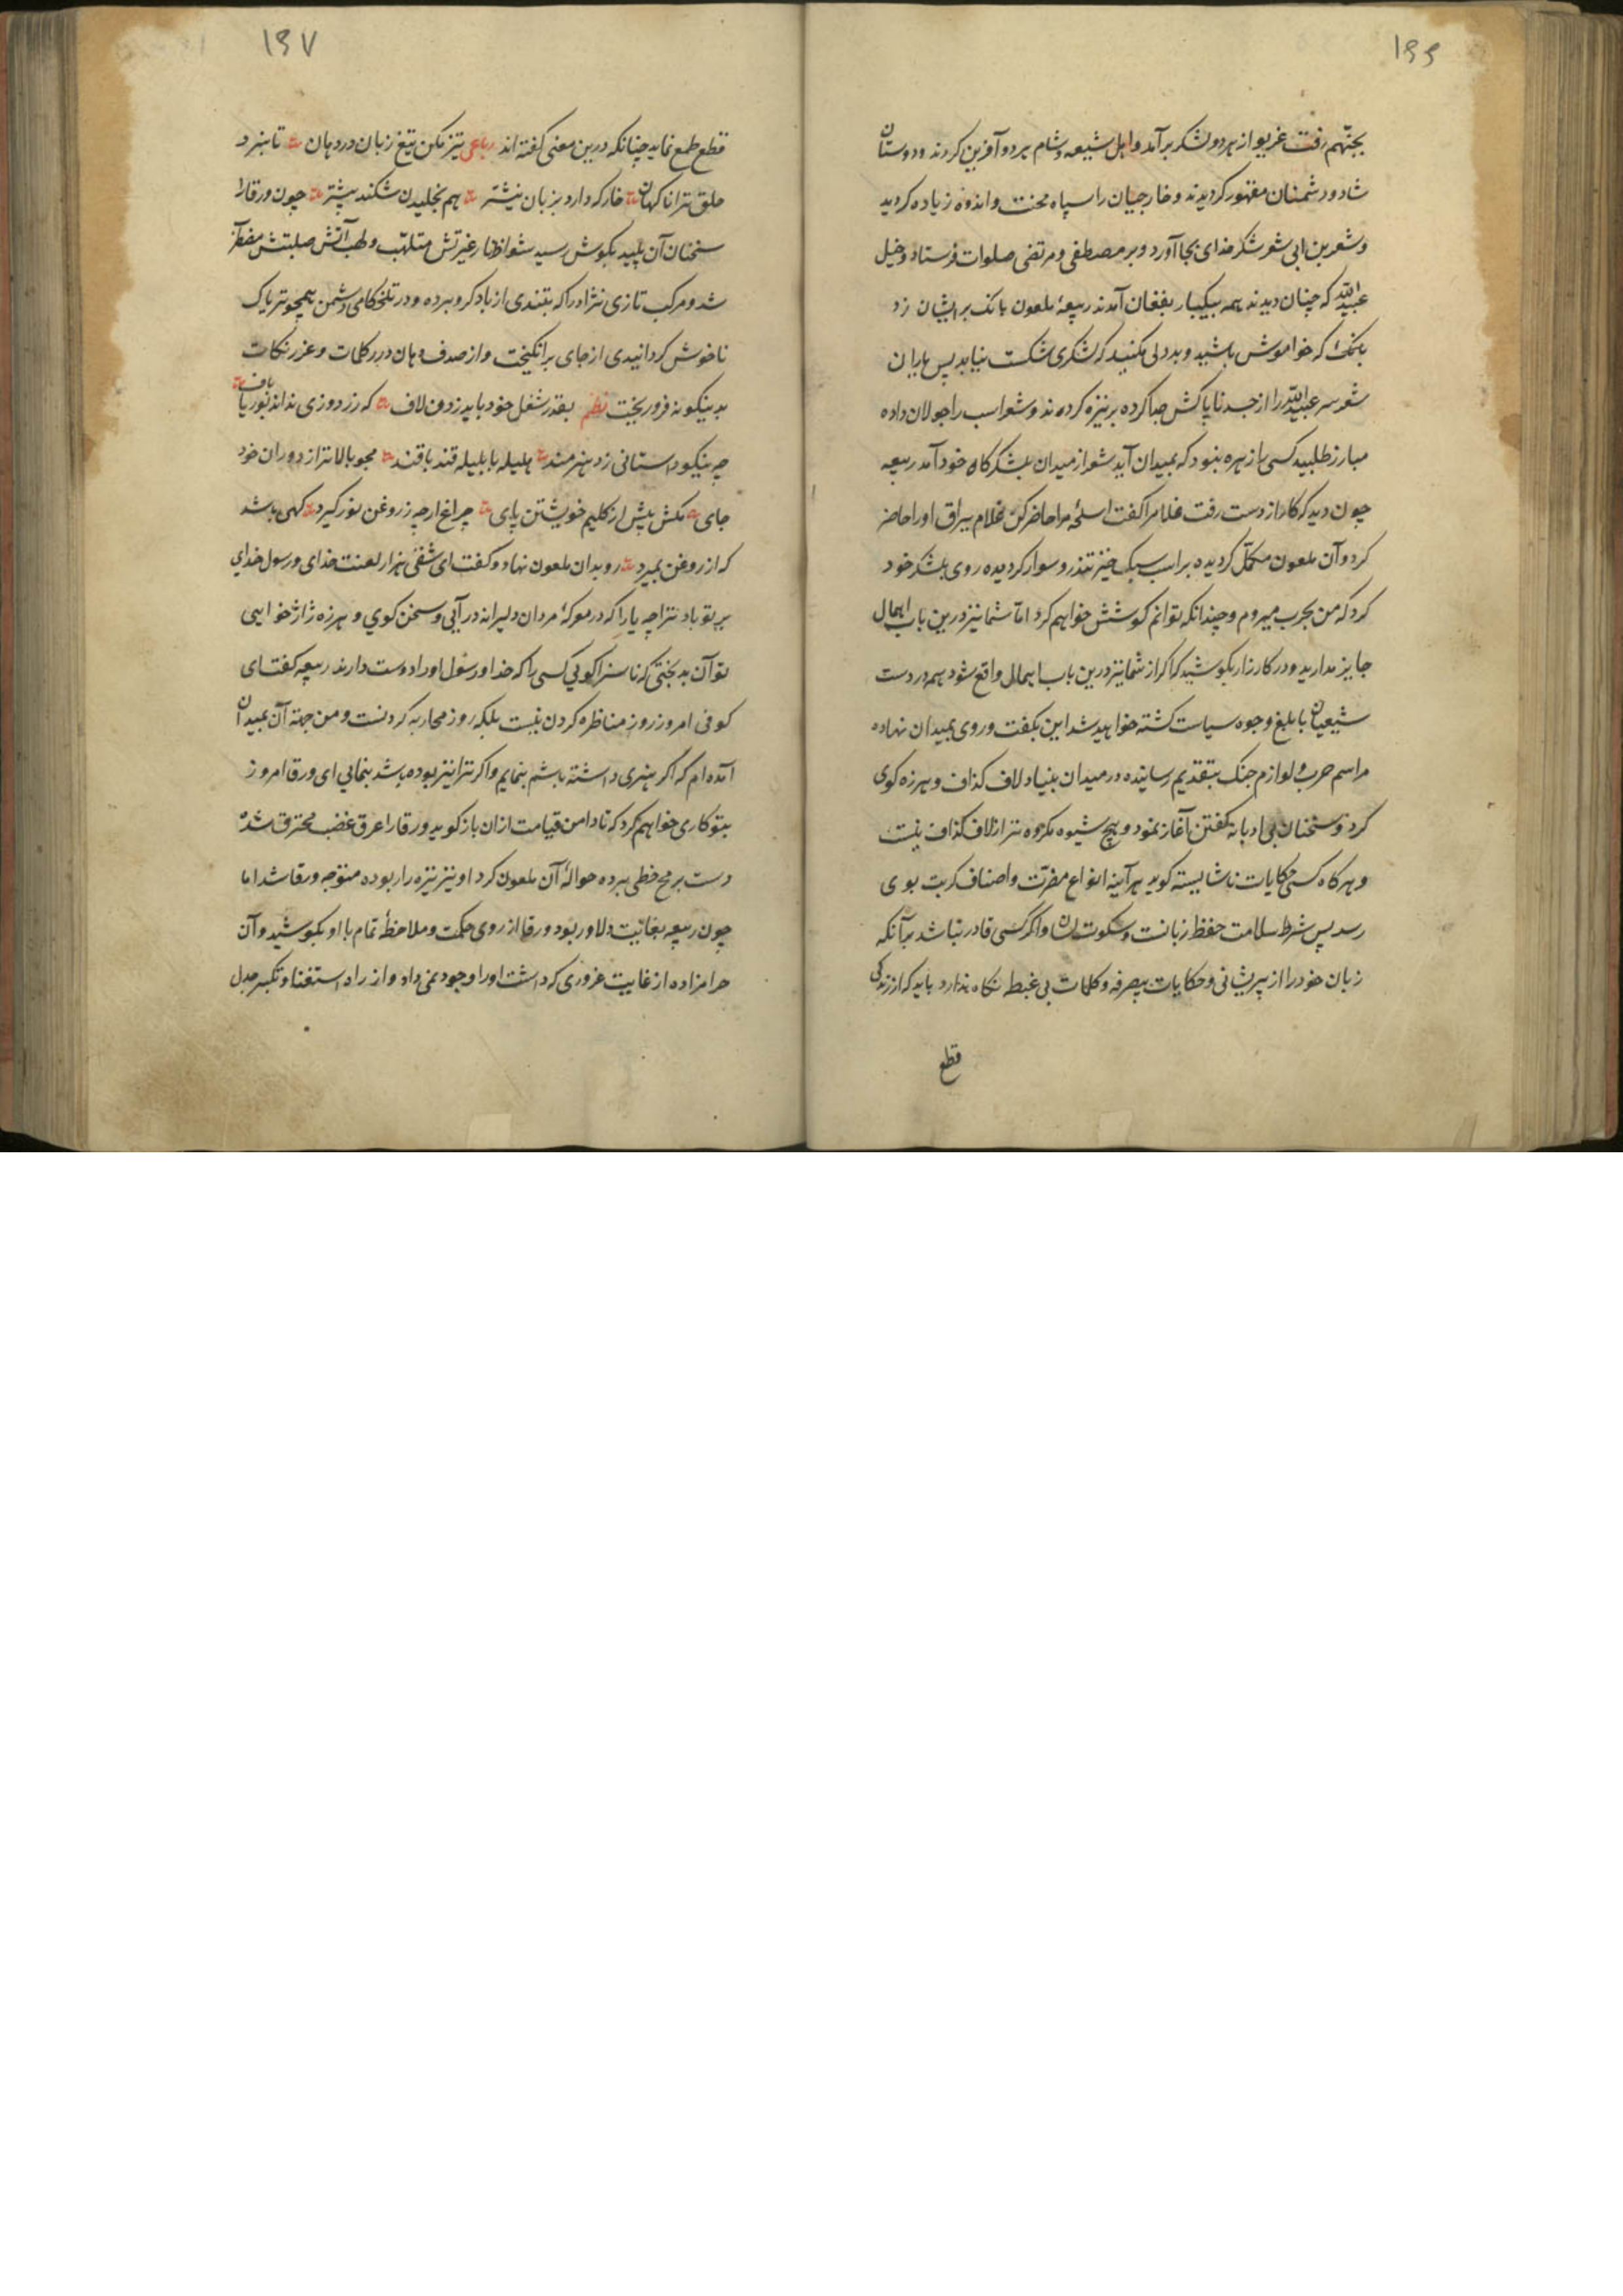 ۱۶۶
بجهنّم رفت غریو از هر دو لشکر برآمد و اهل شیعه و شام بر دو آفرین کردند و دوستان
شاد و دشمنان مقهور کردیدند و خارجیان را سپاه محنت و اندوه زیاده کردید
و شعر بن ابی شعر شکر خدای بجا آورد و بر مصطفی و مرتضی صلوات فرستاد و خیل
عبیداللّه که چنان دیدند همه بیکبار بفغان آمدند ربیعهٔ ملعون بانک بر ایشان زد
که خواموش باشید و بددلی مکنید که لشکری شکست نیابد پس یاران
شعر سر عبیداللّه را از جسد ناپاکش جدا کرده بر نیزه کردند و شعر اسب را جولان داده
مبارز طلبید کسی را زهره نبود که بمیدان آید شعر از میدان بلشکرکاه خود آمد ربیعه
چون دید که کار از دست رفت غلام را گفت اسلحهٔ مرا حاضر کن غلام یراق او را حاضر
کرد و آن ملعون مکمّل کردیده بر اسب سبک خیز تندرو سوار کردیده روی بلشکر خود
کرد که من بحرب میروم و چندانکه توانم کوشش خواهم کرد امّا شما نیز درین باب اهمال
جایز مدارید و در کارزار بکوشید که اکر از شما نیز درین باب اهمال واقع شود همه در دست
شیعیان بابلغ وجوه سیاست کشته خواهید شد این بکفت و روی بمیدان نهاده
مراسم حرب و لوازم جنک بتقدیم رسانیده در میدان بنیاد لاف کذاف و هرزه کوی
کرد و سخنان بی ادبانه کفتن آغاز نمود و هیچ شیوه مکروه تر از لاف کذاف نیست
و هر کاه کسی حکایات ناشایسته کوید هر آینه انواع مضرّت و اصناف کربت بوی
رسد پس شرط سلامت حفظ زبانست و سکوت لسان و اکر کسی قادر نباشد بر آنکه
زبان خود را از پریشانی و حکایات بیصرفه و کلمات بی غبطه نکاه ندارد باید که از زندکی
قطع
۱۶۷
قطع طمع نماید چنانکه درین معنی کفته اند رباعی تیز مکن تیغ زبان در دهان تا نبرد
حلق ترا ناکهان خار که دارد بزبان نیشتر هم بخلیدن شکند پیشتر چون ورقا را
سخنان آن پلید بکوش رسید شواظ نار غیرتش متلهّب و لهب آتش صلبتش مضطر
شد و مرکب تازی نژاد را که بتندی از باد کرو برده و در تلخکامی دشمن همچو تریاک
ناخوش کردانیدی از جای برانکیخت و از صدف دهان درر کلمات و غرر نکات
بدینکونه فرو ریخت نظم بقدر شغل خود باید زدن لاف که زردوزی نداند بوریاباف
چه نیکو داستانی زد هنرمند هلیله با بلیله قند با قند مجو بالاتر از دوران خود
جای مکش پیش از کلیم خویشتن پای چراغ ارچه ز روغن نور کیرد کهی باشد
که از روغن بمیرد رو بدان ملعون نهاد و کفت ای شقی هزار لعنت خدای و رسول خدای
بر تو باد ترا چه یارا که در معرکهٔ مردان دلیرانه درآیی و سخن کوی و هرزه ژاژ خوایی
تو آن بدبختی که ناسزا کویی کسی را که خدا و رسول او را دوست دارند ربیعه کفت ای
کوفی امروز روز مناظره کردن نیست بلکه روز محاربه کردنست و من جهة آن بمیدان
آمده ام که اکر هنری داشته باشم بنمایم و اکر ترا نیز بوده باشد بنمایی ای ورقا امروز
بتو کاری خواهم کرد که تا دامن قیامت از ان باز کویند ورقا را عرق غضب محترق شد
دست بر رمح خطی برده حوالهٔ آن ملعون کرد او نیز نیزه را ربوده متوجه ورقا شد اما
چون ربیعه بغایت دلاور بود ورقا از روی حکمت و ملاحظهٔ تمام با او بکوشید و آن
حرامزاده از غایت غروری که داشت او را وجود نمی داد و از راه استغنا و تکبر جدل